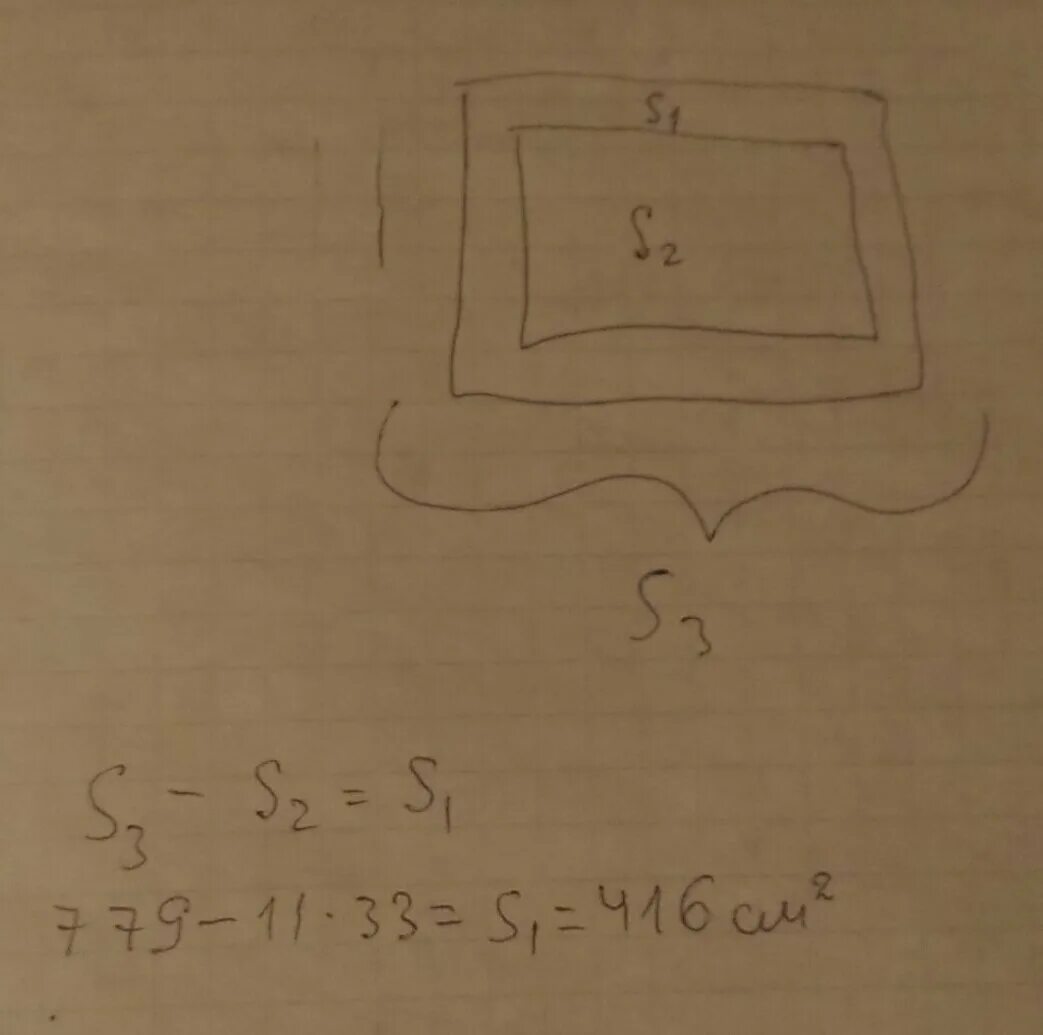 S₁
S₂
S₃
S₃ - S₂ = S₁
779 - 11 · 33 = S₁ = 416 см²